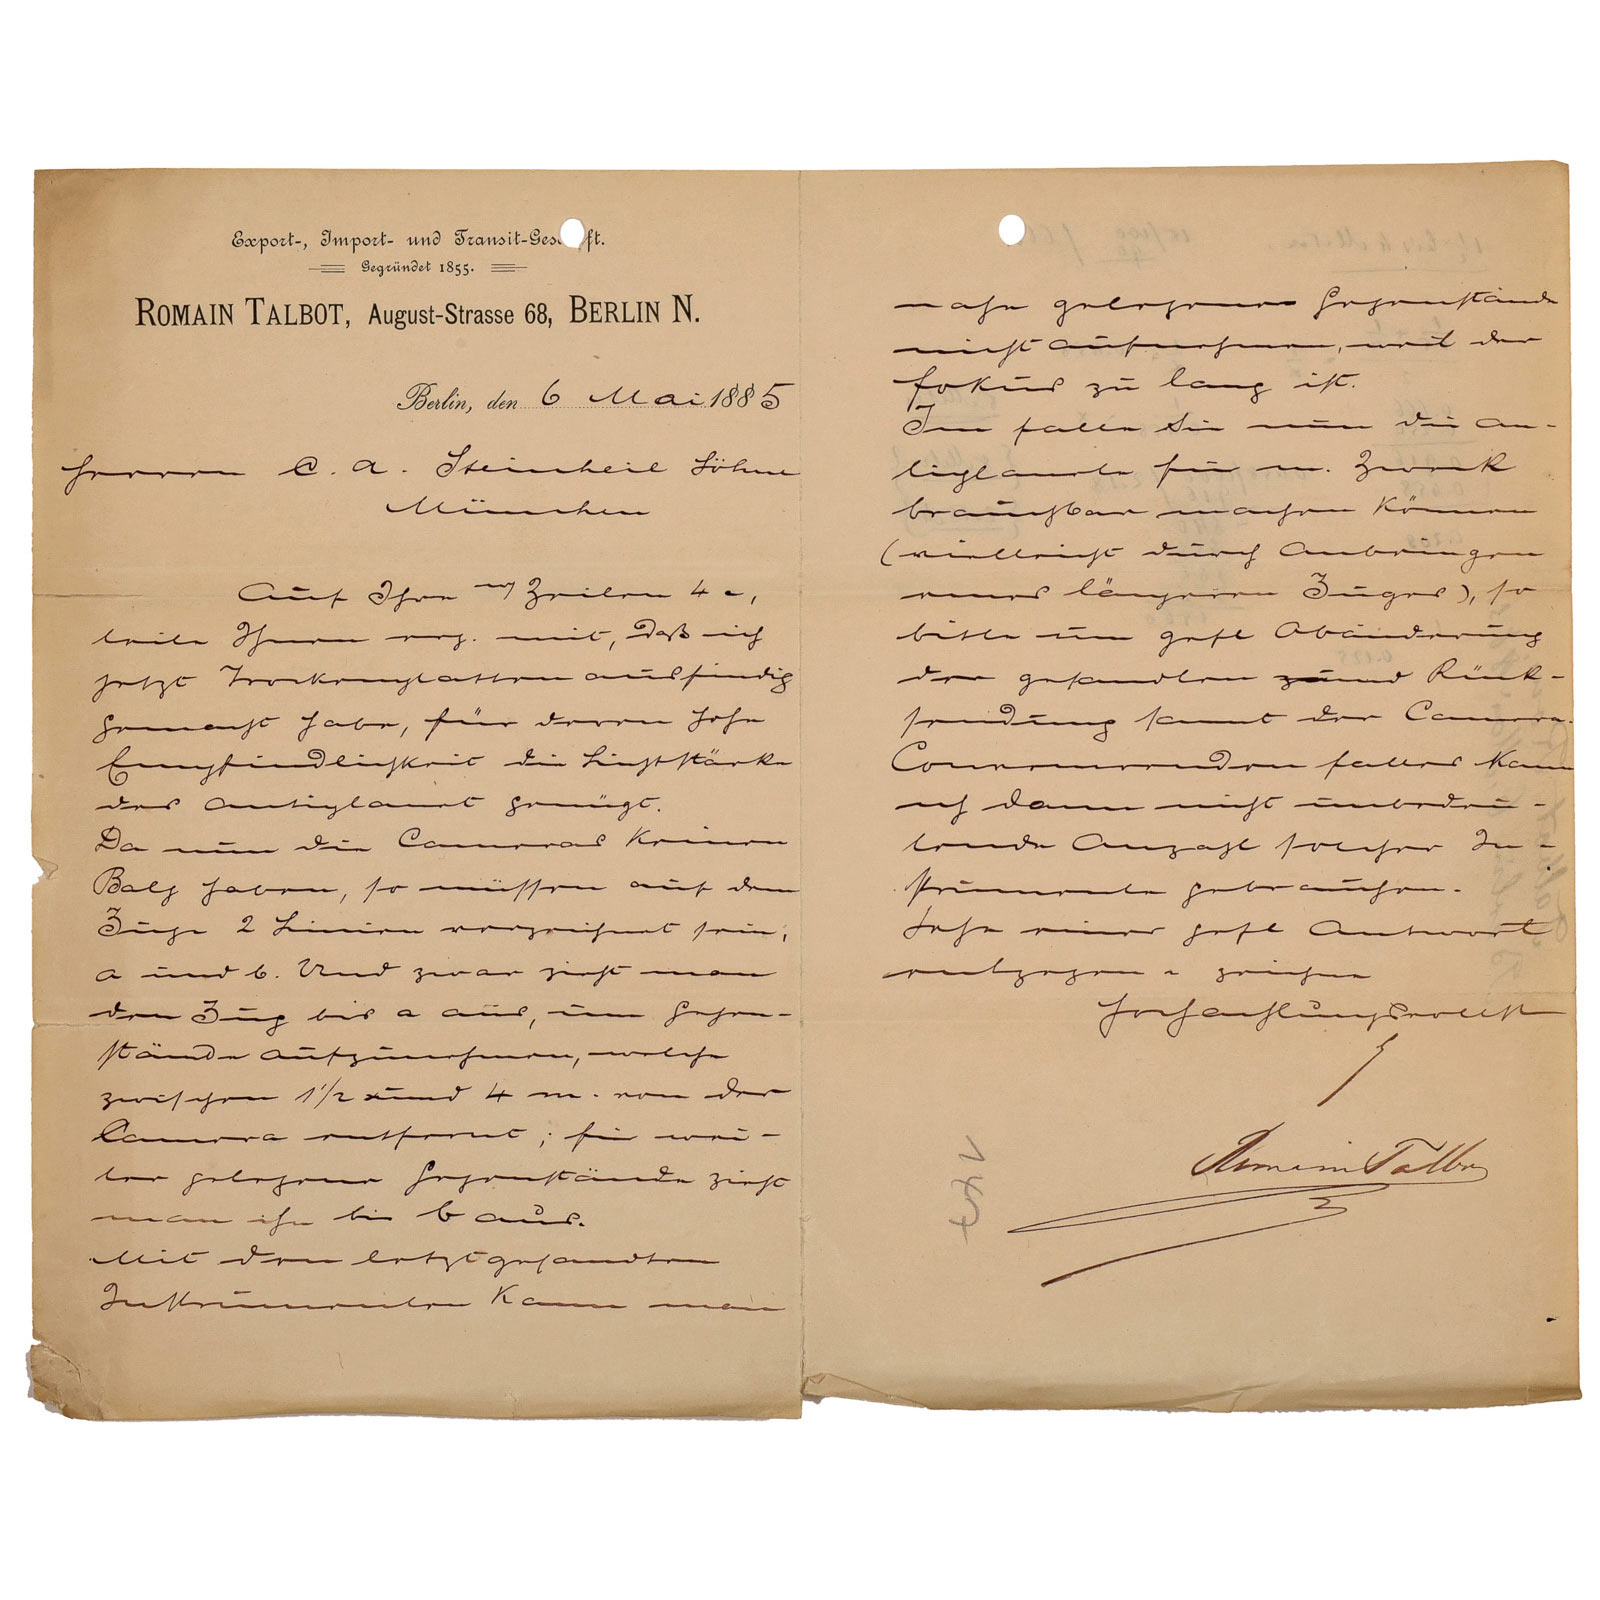 Export-, Import- und Transit-Geschäft.
Gegründet 1855.
ROMAIN TALBOT, August-Strasse 68, BERLIN N.
Berlin, den 6 Mai 1885
Herren C. A. Steinheil Söhne
München
Auf Ihre Zeilen 4 c,
teile Ihnen erg. mit, daß ich
jetzt Trockenplatten ausfindig
gemacht habe, für deren hohe
Empfindlichkeit die Lichtstärke
des Antiplanet genügt.
Da nun die Cameras keinen
Balg haben, so müssen auf dem
Zuge 2 Linien verzeichnet sein,
a und b. Und zwar zieht man
den Zug bis a aus, um Gegen-
stände aufzunehmen, welche
zwischen 1 1/2 und 4 m. von der
Camera entfernt; für wei-
ter gelegene Gegenstände zieht
man ihn bis b aus.
Mit den letztgesandten
Instrumenten kann man
nahe gelegene Gegenstände
nicht aufnehmen, weil der
Fokus zu lang ist.
Im Falle Sie nun die An-
tiplanete für m. Zweck
brauchbar machen können
(vielleicht durch Anbringen
eines längeren Zuges), so
bitte um gefl Abänderung
der gesandten und Rück-
sendung samt der Camera.
Convenierenden Falles kann
ich dann nicht unbedeu-
tende Anzahl solcher In-
strumente gebrauchen.
Sehe einer gefl Antwort
entgegen & zeichne
Hochachtungsvollst
Romain Talbot